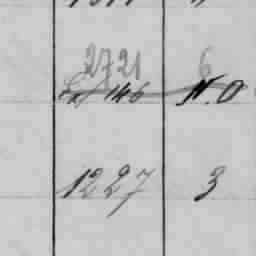 2721 6
146 N.O
1227 3